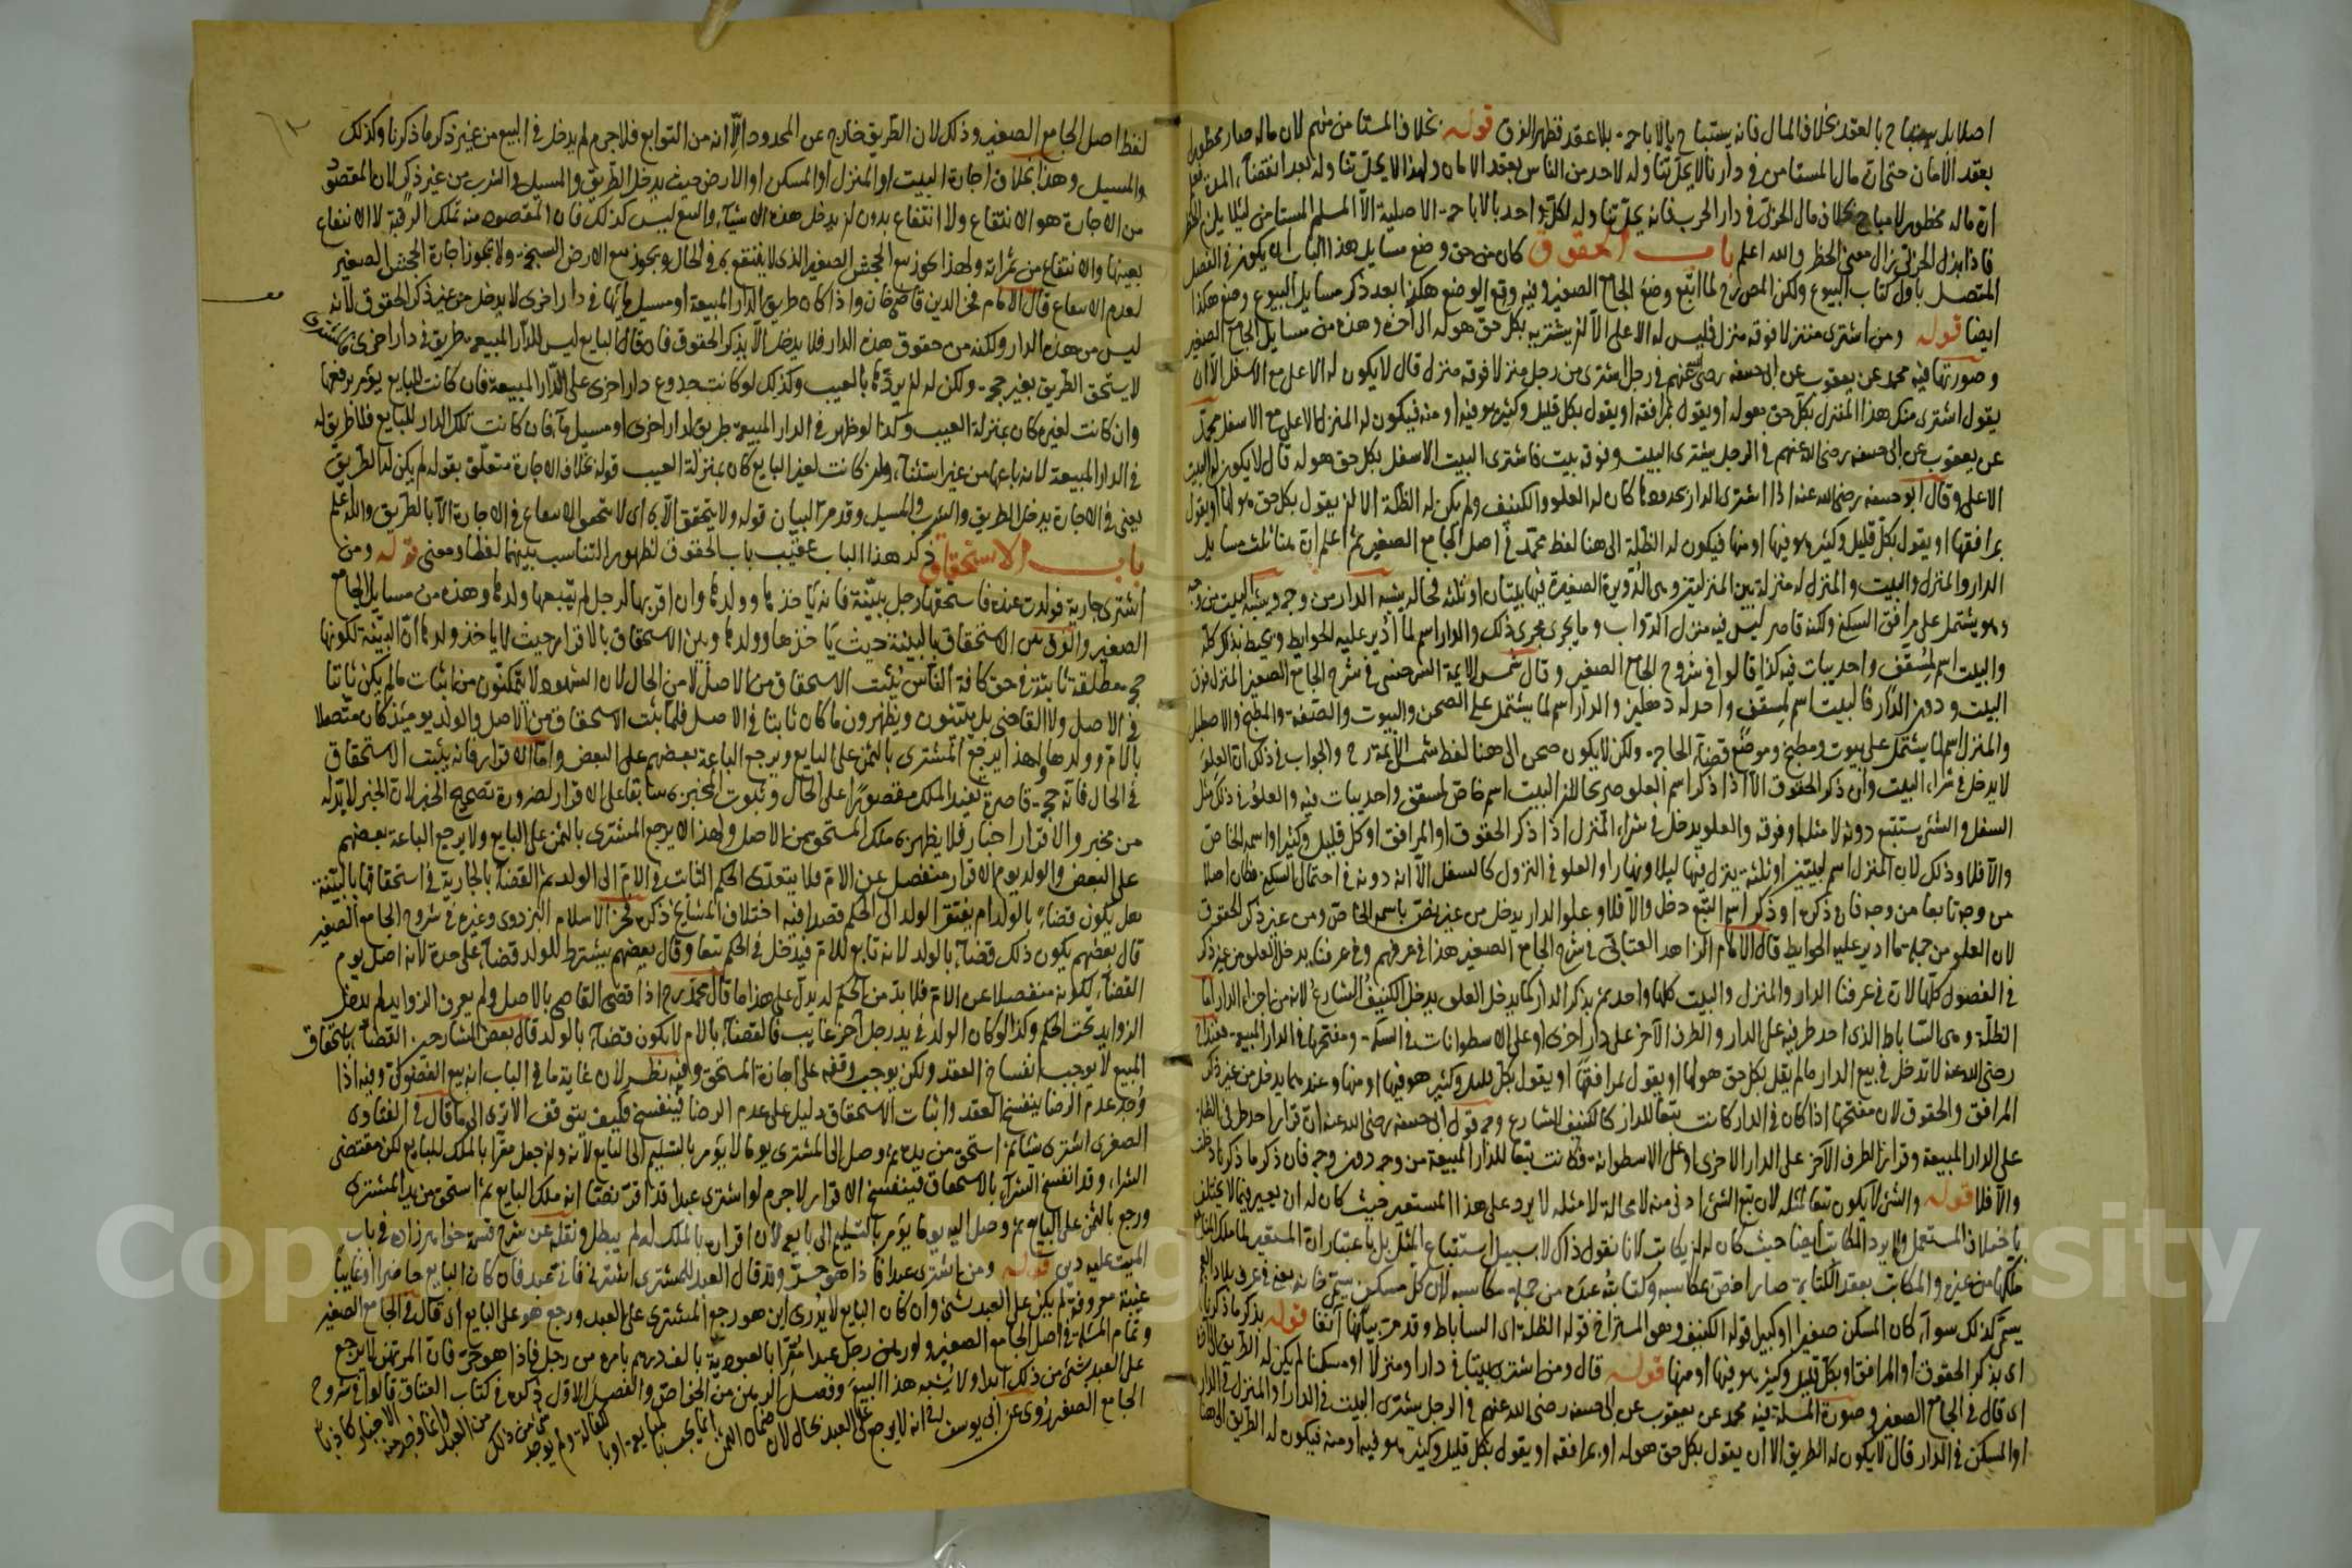 اصلا بل يستباح بالعقد بخلاف المال فانه يستباح بالاباحة بلا عقد فظهر الفرق قوله بخلاف المستامن منهم لان ماله صار محظورا
بعقد الامان حتى ان مال المستامن في دارنا لا يحل تناوله لاحد من الناس بعقد الامان ولهذا لا يحل تناوله بعد انقضاء المدة
ان ماله محظور لا مباح بخلاف مال الحربي في دار الحرب فانه يحل تناوله لكل واحد بالاباحة الاصلية الا المسلم المستامن لئلا يلزم
فاذا بذل الحربي زال معنى الحظر والله اعلم باب الحقوق كان من حق وضع مسايل هذا الباب ان يكون في الفصل
المتصل باول كتاب البيوع ولكن المص رح لما اتبع وضع الجامع الصغير وفيه وقع الوضع هكذا بعد ذكر مسايل البيوع وضع هكذا
ايضا قوله ومن اشترى منزلا فوقه منزل فليس له الاعلى الا ان يشتريه بكل حق هو له الى آخره وهذه من مسايل الجامع الصغير
وصورتها فيه محمد عن يعقوب عن ابي حنيفة رضي الله عنهم في رجل اشترى من رجل منزلا فوقه منزل قال لا يكون له الاعلى مع الاسفل الا ان
يقول اشترى منك هذا المنزل بكل حق هو له او يقول بمرافقه او يقول بكل قليل وكثير هو فيه او منه فيكون له المنزل الاعلى مع الاسفل محمد
عن يعقوب عن ابي حنيفة رضي الله عنهم في الرجل يشتري البيت وفوقه بيت فاشترى البيت الاسفل بكل حق هو له قال لا يكون له البيت
الاعلى وقال ابو حنيفة رضي الله عنه اذا اشترى الدار بحدودها كان له العلو والكنيف ولم يكن له الظلة الا ان يقول بكل حق هو لها او يقول
بمرافقها او يقول بكل قليل وكثير هو فيها او منها فيكون له الظلة الى هنا لفظ محمد في اصل الجامع الصغير ثم اعلم ان هنا ثلث مسايل
الدار والمنزل والبيت والمنزل له منزلة بين المنزلتين وهي الدويرة الصغيرة فيها بيتان او ثلثة فحاله يشبه الدار من وجه ويشبه البيت من وجه
وهو يشتمل على مرافق السكنى ولكنه قاصر ليس فيه منزل الدواب وما يجري مجرى ذلك والدار اسم لما ادير عليه الحوايط ويحيط بذلك كله
والبيت اسم لمسقف واحد يبات فيه كذا قالوا في شروح الجامع الصغير وقال شمس الايمة السرخسي في شرح الجامع الصغير المنزل فوق
البيت ودون الدار فالبيت اسم لمسقف واحد له دهليز والدار اسم لما يشتمل على الصحن والبيوت والصفة والمطبخ والاصطبل
والمنزل اسم لما يشتمل على بيوت ومطبخ وموضع قضاء الحاجة ولكن لا يكون صحن الى هنا لفظ شمس الايمة رح والجواب في ذلك ان العلو
لا يدخل في شراء البيت وان ذكر الحقوق الا اذا ذكر اسم العلو صريحا لان البيت اسم خاص لمسقف واحد يبات فيه والعلو في ذلك مثل
السفل والشئ يستتبع دونه لا مثله او فوقه والعلو يدخل في شراء المنزل اذا ذكر الحقوق او المرافق او كل قليل وكثير او اسمه الخاص
والا فلا وذلك لان المنزل اسم لبيتين او ثلثة ينزل فيها ليلا ونهارا والعلو في النزول كالسفل الا انه دونه في احتمال السكنى فكان اصلا
من وجه تابعا من وجه فان ذكره او ذكر اسم التبع دخل والا فلا وعلو الدار يدخل من غير نص باسمه الخاص ومن غير ذكر الحقوق
لان العلو من جملة ما ادير عليه الحوايط قال الامام الزاهد العتابي في شرح الجامع الصغير هذا في عرفهم وفي عرفنا يدخل العلو من غير ذكر
في الفصول كلها لان في عرفنا الدار والمنزل والبيت كلها واحد ثم بذكر الدار كما يدخل العلو يدخل الكنيف الشارع لانه من اجزاء الدار اما
الظلة وهي الساباط الذي احد طرفيه على الدار والطرف الآخر على دار اخرى او على الاسطوانات في السكة ومفتحها في الدار المبيعة فعند ابي ح
رضي الله عنه لا تدخل في بيع الدار ما لم يقل بكل حق هو لها او يقول بمرافقها او يقول بكل قليل وكثير هو فيها او منها وعندهما يدخل من غير ذكر
المرافق والحقوق لان مفتحها اذا كان في الدار كانت تبعا للدار كالكنيف الشارع وجه قول ابي حنيفة رضي الله عنه ان قرار احد طرفي الظلة
على الدار المبيعة وقرار الطرف الآخر على الدار الاخرى او على الاسطوانة فكانت تبعا للدار المبيعة من وجه دون وجه فان ذكر ما ذكرنا دخلت
والا فلا قوله والشئ لا يكون تبعا لمثله لان تبع الشئ ادنى منه لا محالة لا مثله لا يرد على هذا المستعير حيث كان له ان يعير فيما لا يختلف
باختلاف المستعمل ولا يرد المكاتب ايضا حيث كان له ان يكاتب لانا نقول ذاك لا بسبيل استتباع المثل بل باعتبار ان المستعير لما ملك المنافع
ملكها من غيره والمكاتب بعقد الكتابة صار احق بمكاسبه وكتابة عبده من جملة مكاسبه لان كل مسكن يسمى خانه يعني في عرف بلاد العجم
يسمى كذلك سواء كان المسكن صغيرا او كبيرا قوله الكنيف وهو المستراح قوله الظلة اي الساباط وقد مر بيانها آنفا قوله بذكر ما ذكرنا
اى بذكر الحقوق او المرافق او بكل قليل وكثير هو فيها او منها قوله قال ومن اشترى بيتا في دار او منزلا او مسكنا لم يكن له الطريق الا ان
اى قال في الجامع الصغير وصورة المسئلة فيه محمد عن يعقوب عن ابي حنيفة رضي الله عنهم في الرجل يشتري البيت في الدار او المنزل في الدار
او المسكن في الدار قال لا يكون له الطريق الا ان يقول بكل حق هو له او بمرافقه او يقول بكل قليل وكثير هو فيه او منه فيكون له الطريق الى هنا
لفظ اصل الجامع الصغير وذلك لان الطريق خارج عن المحدود الا انه من التوابع فلا جرم لم يدخل في البيع من غير ذكر ما ذكرنا وكذلك
والمسيل وهذا بخلاف اجارة البيت او المنزل او المسكن او الارض حيث يدخل الطريق والمسيل والشرب من غير ذكر لان المقصود
من الاجارة هو الانتفاع ولا انتفاع بدون ان يدخل هذه الاشياء والبيع ليس كذلك فان المقصود منه تملك الرقبة لا الانتفاع
بعينها والانتفاع من ثمراته ولهذا يجوز بيع الجحش الصغير الذي لا ينتفع به في الحال ويجوز بيع الارض السبخة ولا يجوز اجارة الجحش الصغير
لعدم الانتفاع قال الامام فخر الدين قاضي خان واذا كان طريق الدار المبيعة او مسيل مائها في دار اخرى لا يدخل من غير ذكر الحقوق لانه
ليس من هذه الدار ولكنه من حقوق هذه الدار فلا يدخل الا بذكر الحقوق فان قال البايع ليس للدار المبيعة طريق في دار اخرى فالمشتري
لا يستحق الطريق بغير حجة ولكن له ان يردها بالعيب وكذلك لو كانت جذوع دار اخرى على الدار المبيعة فان كانت للبايع يؤمر برفعها
وان كانت لغيره كان بمنزلة العيب وكذا لو ظهر في الدار المبيعة طريق لدار اخرى او مسيل ماء فان كانت تلك الدار للبايع فلا طريق له
في الدار المبيعة لانه باعها من غير استثناء وان كانت لغير البايع كان بمنزلة العيب قوله بخلاف الاجارة متعلق بقوله لم يكن له الطريق
يعني في الاجارة يدخل الطريق والشرب والمسيل وقد مر البيان قوله ولا يتحقق الا به اى لا يتحقق الانتفاع في الاجارة الا بالطريق والله اعلم
باب الاستحقاق ذكر هذا الباب عقيب باب الحقوق لظهور التناسب بينهما لفظا ومعنى قوله ومن
اشترى جارية فولدت عنده فاستحقها رجل ببينة فانه ياخذها وولدها وان اقر بها لرجل لم يتبعها ولدها وهذه من مسايل الجامع
الصغير والفرق بين الاستحقاق بالبينة حيث ياخذها وولدها وبين الاستحقاق بالاقرار حيث لا ياخذ ولدها ان البينة لكونها
حجة مطلقة ثابتة في حق كافة الناس يثبت الاستحقاق من الاصل لا من الحال لان الشهود لا يتمكنون من اثبات ما لم يكن ثابتا
في الاصل ولا القاضي بل يثبتون ويظهرون ما كان ثابتا في الاصل فلما ثبت الاستحقاق من الاصل والولد يومئذ كان متصلا
بالام وولدها ولهذا يرجع المشتري بالثمن على البايع ويرجع الباعة بعضهم على البعض واما الاقرار فانه يثبت الاستحقاق
في الحال فانه حجة قاصرة تفيد الملك مقصورا على الحال وثبوت المخبر به سابقا على الاقرار لضرورة تصحيح الخبر لان الخبر لا بد له
من مخبر والاقرار اخبار فلا يظهر به ملك المستحق من الاصل ولهذا لا يرجع المشتري بالثمن على البايع ولا يرجع الباعة بعضهم
على البعض والولد يوم الاقرار منفصل عن الام فلا يتعدى الحكم الثابت في الام الى الولد ثم القضاء بالجارية في استحقاقها بالبينة
هل يكون قضاء بالولد ام يفتقر الولد الى الحكم قصدا فيه اختلاف المشايخ ذكره فخر الاسلام البزدوي وغيره في شروح الجامع الصغير
قال بعضهم يكون ذلك قضاء بالولد لانه تابع للام فيدخل في الحكم تبعا وقال بعضهم يشترط للولد قضاء على حدة لانه اصل يوم
القضاء لكونه منفصلا عن الام فلا بد من الحكم له يدل على هذا ما قال محمد رح اذا قضى القاضي بالاصل ولم يعرف الزوايد لم يدخل
الزوايد تحت الحكم وكذا لو كان الولد في يد رجل آخر غايب فالقضاء بالام لا يكون قضاء بالولد قال بعض الشارحين القضاء باستحقاق
المبيع لا يوجب انفساخ العقد ولكن يوجب وقفه على اجازة المستحق وفيه نظر لان غاية ما في الباب انه بيع الفضولي وفيه اذا
وجد عدم الرضا ينفسخ العقد واثبات الاستحقاق دليل على عدم الرضا فينفسخ فكيف يتوقف الا يرى الى ما قال في الفتاوى
الصغرى اشترى شيئا ثم استحق من يده ثم وصل الى المشتري يوما لا يؤمر بالتسليم الى البايع لانه وان جعل مقرا بالملك للبايع لكن مقتضى
الشراء وقد انفسخ الشراء بالاستحقاق فينفسخ الاقرار لا جرم لو اشترى عبدا قد اقر نصا انه ملك البايع ثم استحق من يد المشتري
ورجع بالثمن على البايع ثم وصل اليه يوما يؤمر بالتسليم الى بايعه لان اقراره بالملك له لم يبطل ونقله عن شرح قسمة خواهر زاده في باب
الميت عليه دين قوله ومن اشترى عبدا فاذا هو حر وقد قال العبد للمشتري اشترني فاني عبد فان كان البايع حاضرا او غايبا
غيبة معروفة لم يكن على العبد شئ وان كان البايع لا يدرى اين هو رجع المشتري على العبد ورجع هو على البايع اى قال في الجامع الصغير
وتمام المسئلة في اصل الجامع الصغير ولو رهن رجل عبدا مقرا بالعبودية بالف درهم بامره من رجل فاذا هو حر فان المرتهن لا يرجع
على العبد بشئ من ذلك ابدا ولا يشبه هذا البيع وفصل الرهن من الخواص والفصل الاول ذكره في كتاب العتاق قالوا في شروح
الجامع الصغير روى عن ابي يوسف انه لا يرجع على العبد بحال لان ضمان الثمن انما يجب بالمبايعة او بالكفالة ولم يوجد شئ من ذلك من العبد وانما وجد منه الاخبار كاذبا
Copyright © King Saud University